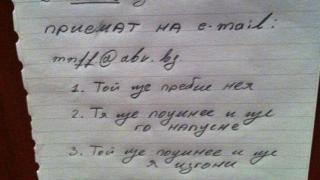 приемат на e-mail:
mnff@abv.bg
1. Той ще пребие нея
2. Тя ще поумнее и ще
го напусне
3. Той ще поумнее и ще
я изгони